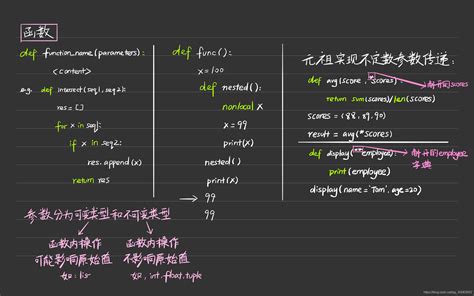 函数
def function_name(parameters):
<content>
e.g. def intersect(seq1, seq2):
res = []
for x in seq1:
if x in seq2:
res.append(x)
return res
参数分为可变类型和不可变类型
函数内操作
可能影响原始值
如: list
函数内操作
不影响原始值
如, int.float.tuple
def func():
x=100
def nested():
nonlocal x
x = 99
print(x)
nested()
print(x)
99
99
元祖实现不定数参数传递:
def avg(score, *scores):
解开的scores
return sum(scores)/len(scores)
scores = (88, 89, 90)
result = avg(*scores)
def display(**employee):
解开的employee
字典
print(employee)
display(name='Tom', age=20)